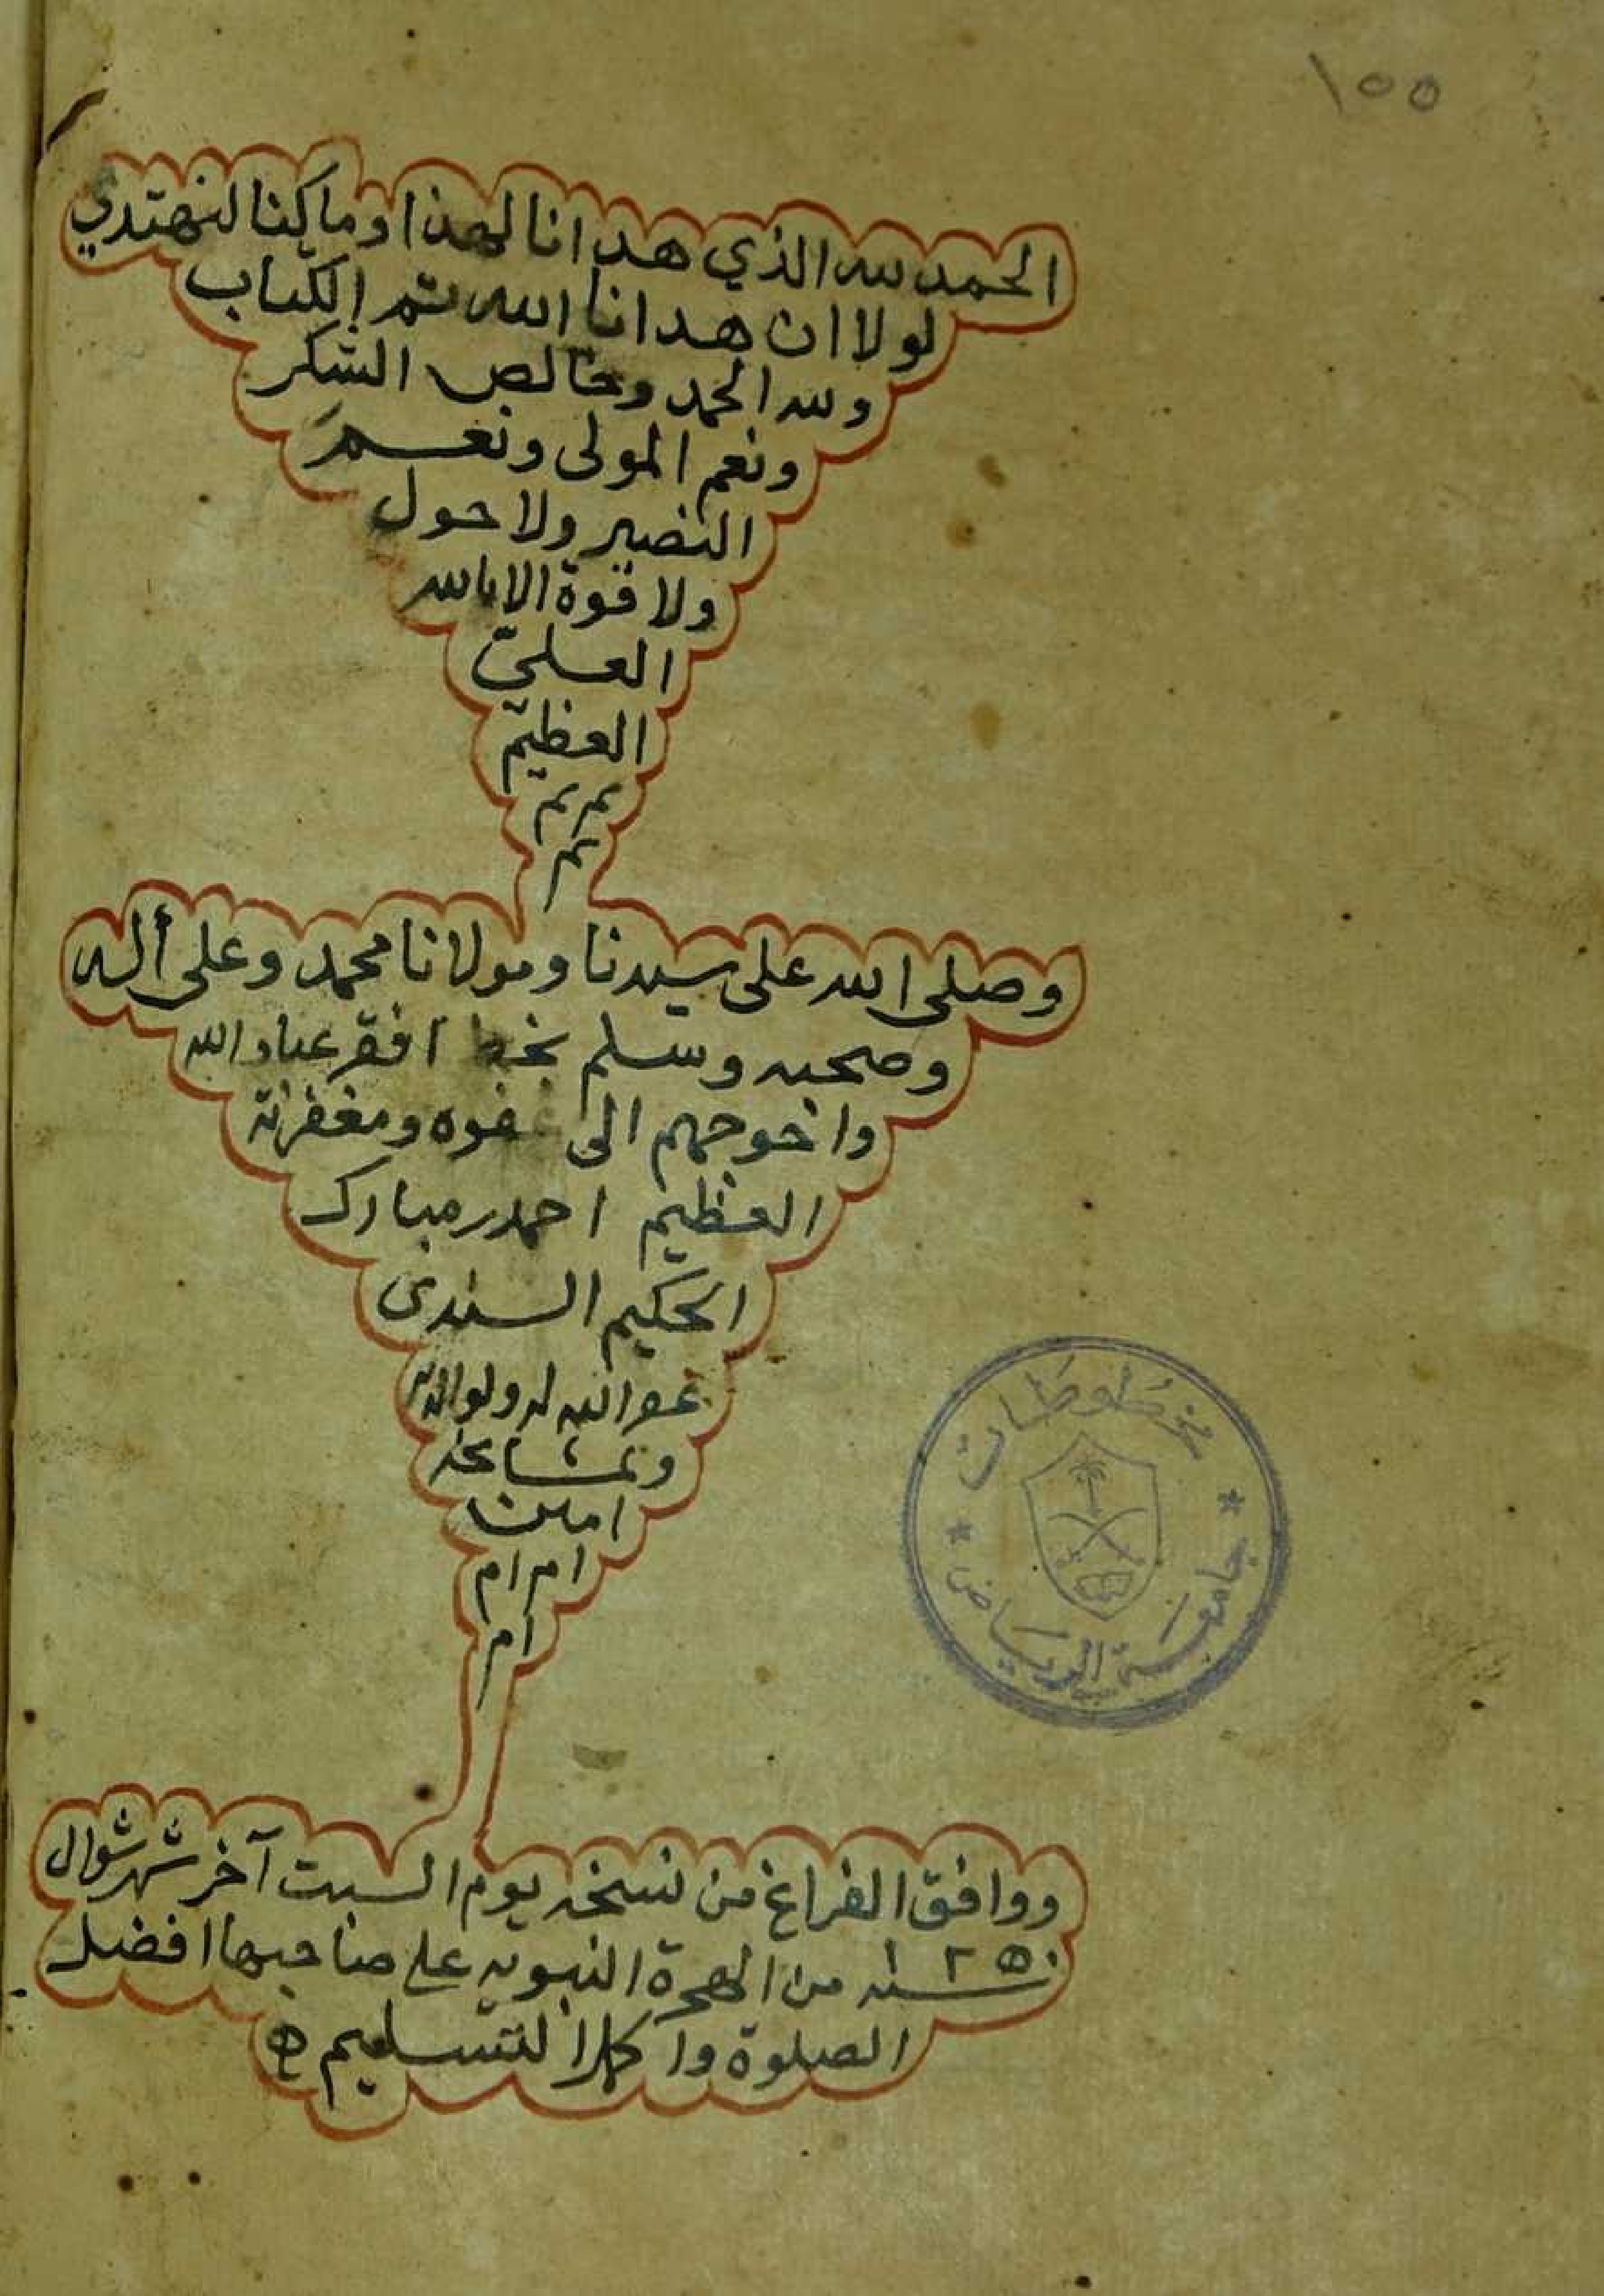 ١٥٥
الحمد لله الذي هدانا لهذا وما كنا لنهتدي
لولا ان هدانا الله تم الكتاب
ولله الحمد وخالص الشكر
ونعم المولى ونعم
النصير ولا حول
ولا قوة الا بالله
العلي
العظيم
تم تم
تم
وصلى الله على سيدنا ومولانا محمد وعلى أله
وصحبه وسلم بخط افقر عباد الله
واحوجهم الى عفوه ومغفرته
العظيم احمد مبارك
الحكيم السندى
غفر الله له ولوالديه
ومشايخه
امين
ام ام
ام
ووافق الفراغ من نسخه يوم السبت آخر شهر شوال
سنه ١٢٥٠ من الهجرة النبويه على صاحبها افضل
الصلوة واكمل التسليم
مخطوطات
جامعة الرياض